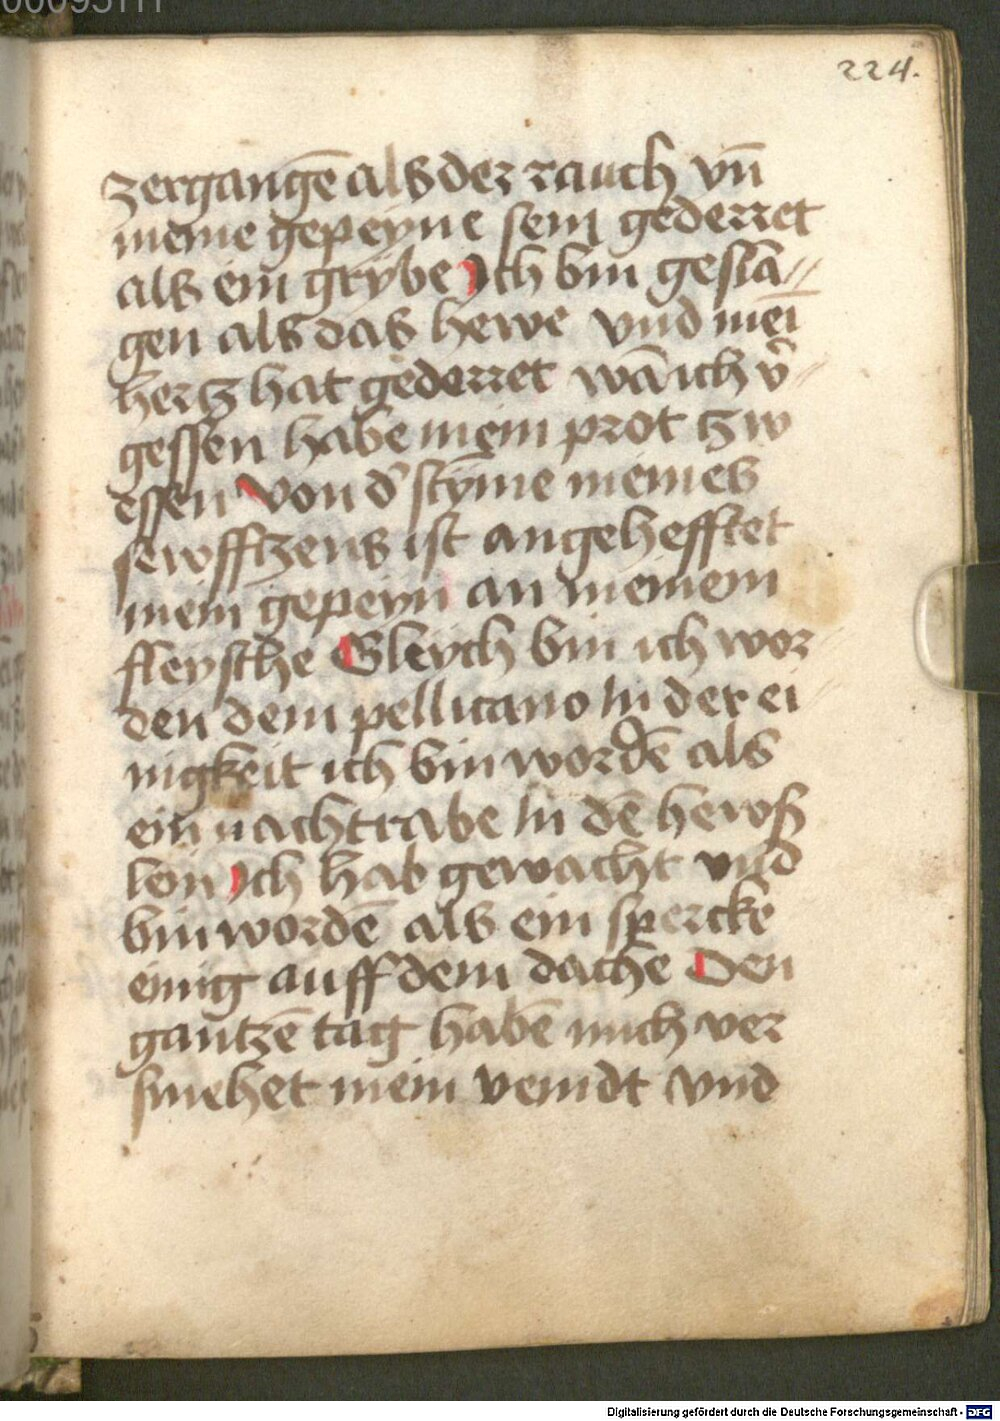 224.
zergangē als der rauch vn̄
meine gepeyne sein gederret
als ein grybe Ich bin geslā//
gen als das hewe vnd mei
hertz hat gederret wā ich v̉
gessen habe mein prot tzw
essen Von d̉ stȳme meines
sewfftzens ist angehefftet
mein gepeyn an meinem
fleysche Gleych bin ich wor
den dem pellicano In der ei
nigkeit ich bin wordē als
ein nachtrabe In dē hewß
lein Ich hab gewacht vnd
bin wordē als ein spercke
einig auff dem dache Den
gantzē tag habē mich ver
smehet mein veindt vnd
Digitalisierung gefördert durch die Deutsche Forschungsgemeinschaft - DFG